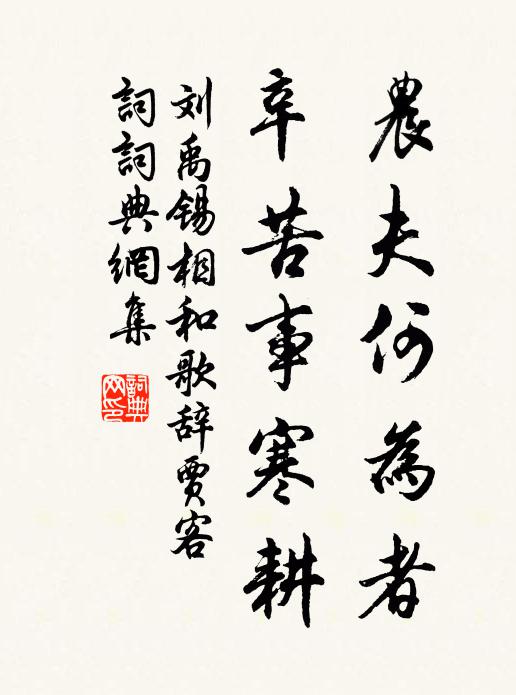 農夫何為者
辛苦事寒耕
刘禹锡相和歌辞贾客
詞詞典網集
詞典
网印